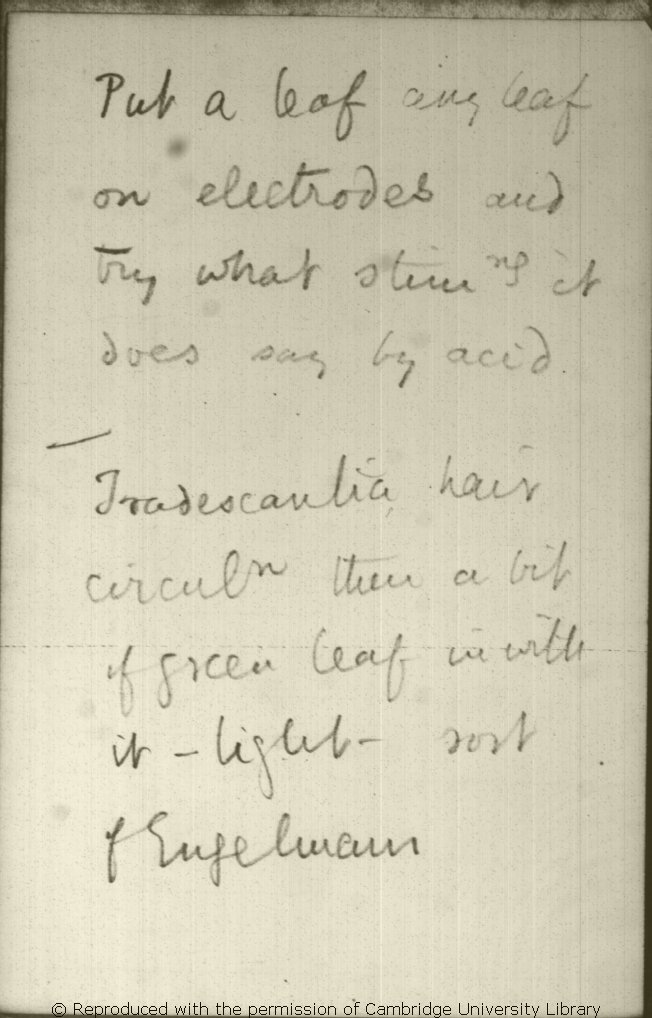 Put a leaf any leaf
on electrodes and
try what stim ng it
does say by acid
—
Tradescantia hair
circuln then a bit
of green leaf in with
it – light – sort
of Engelmann
© Reproduced with the permission of Cambridge University Library